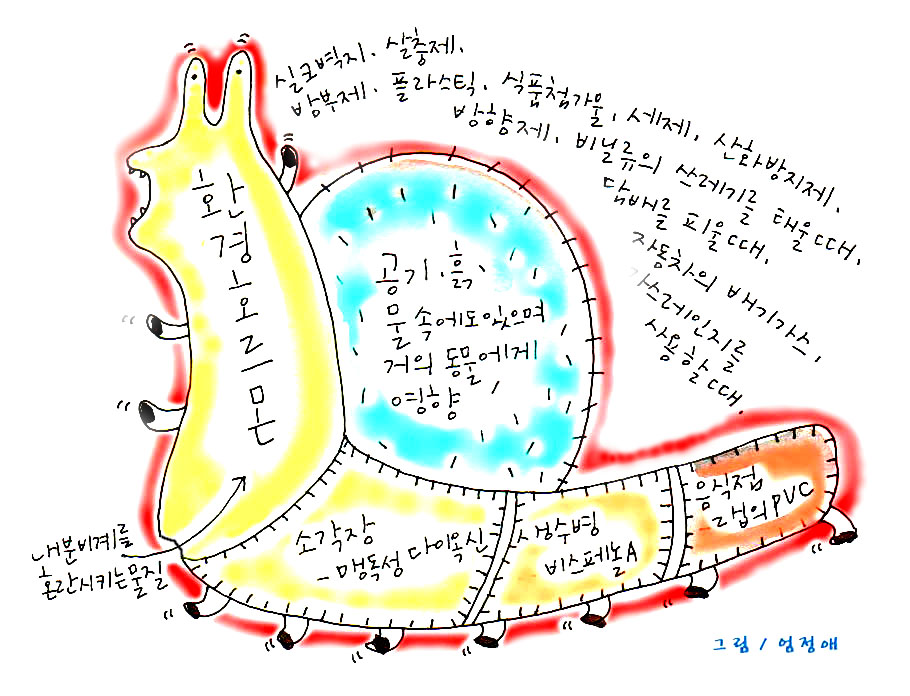 실크벽지. 살충제.
방부제. 플라스틱. 식품첨가물. 세제. 산화방지제.
방향제. 비닐류의 쓰레기를 태울때.
담배를 피울때.
자동차의 배기가스.
가스레인지를
사용할때.
환경호르몬
공기. 흙,
물 속에도있으며
거의 동물에게
영향
내분비계를
혼란시키는물질
소각장
-맹독성 다이옥신
생수병
비스페놀A
음식점
그릅의PVC
그림 / 엄정애